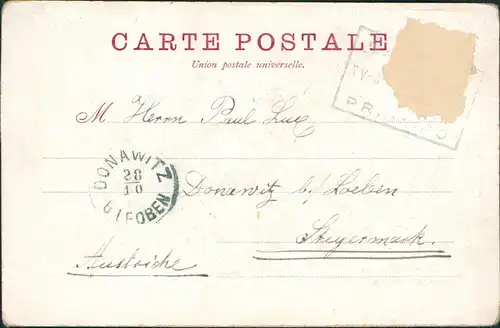 CARTE POSTALE
Union postale universelle.
M Herrn Paul Lux
DONAWITZ
28
10
b/LEOBEN
Donawitz b/ Loeben
Steyermark.
Autriche